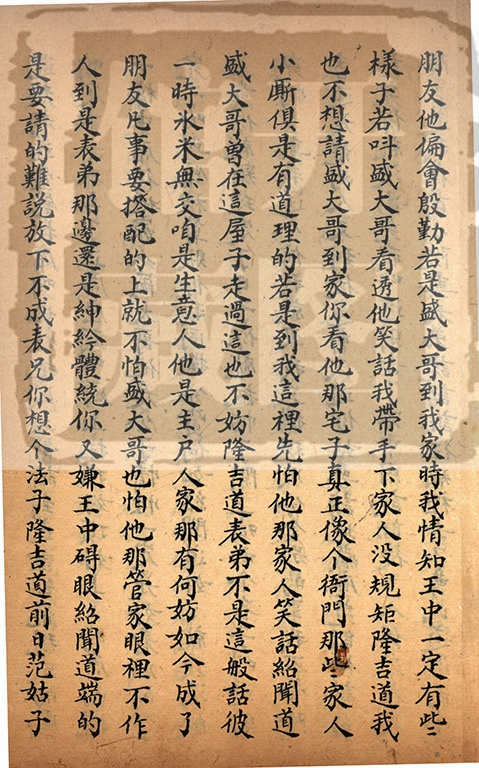 朋友他偏會殷勤若是盛大哥到我家時我情知王中一定有些
樣子若呌盛大哥看透他笑話我帶手下家人没規矩隆吉道我
也不想請盛大哥到家你看他那宅子真正像个衙門那些家人
小厮俱是有道理的若是到我這裡先怕他那家人笑話紹聞道
盛大哥曾在這屋子走過這也不妨隆吉道表弟不是這般話彼
一時氷米無交咱是生意人他是主户人家那有何妨如今成了
朋友凡事要搭配的上就不怕盛大哥也怕他那管家眼裡不作
人到是表弟那邊還是紳衿體統你又嫌王中碍眼紹聞道端的
是要請的難説放下不成表兄你想个法子隆吉道前日范姑子